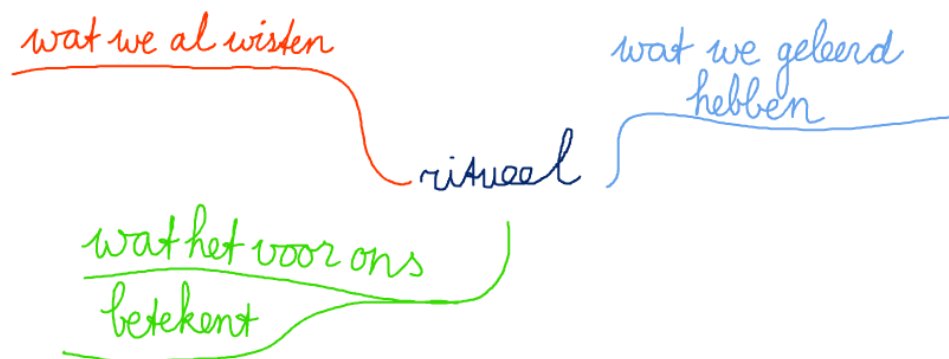 wat we al wisten
wat we geleerd
hebben
ritueel
wat het voor ons
betekent